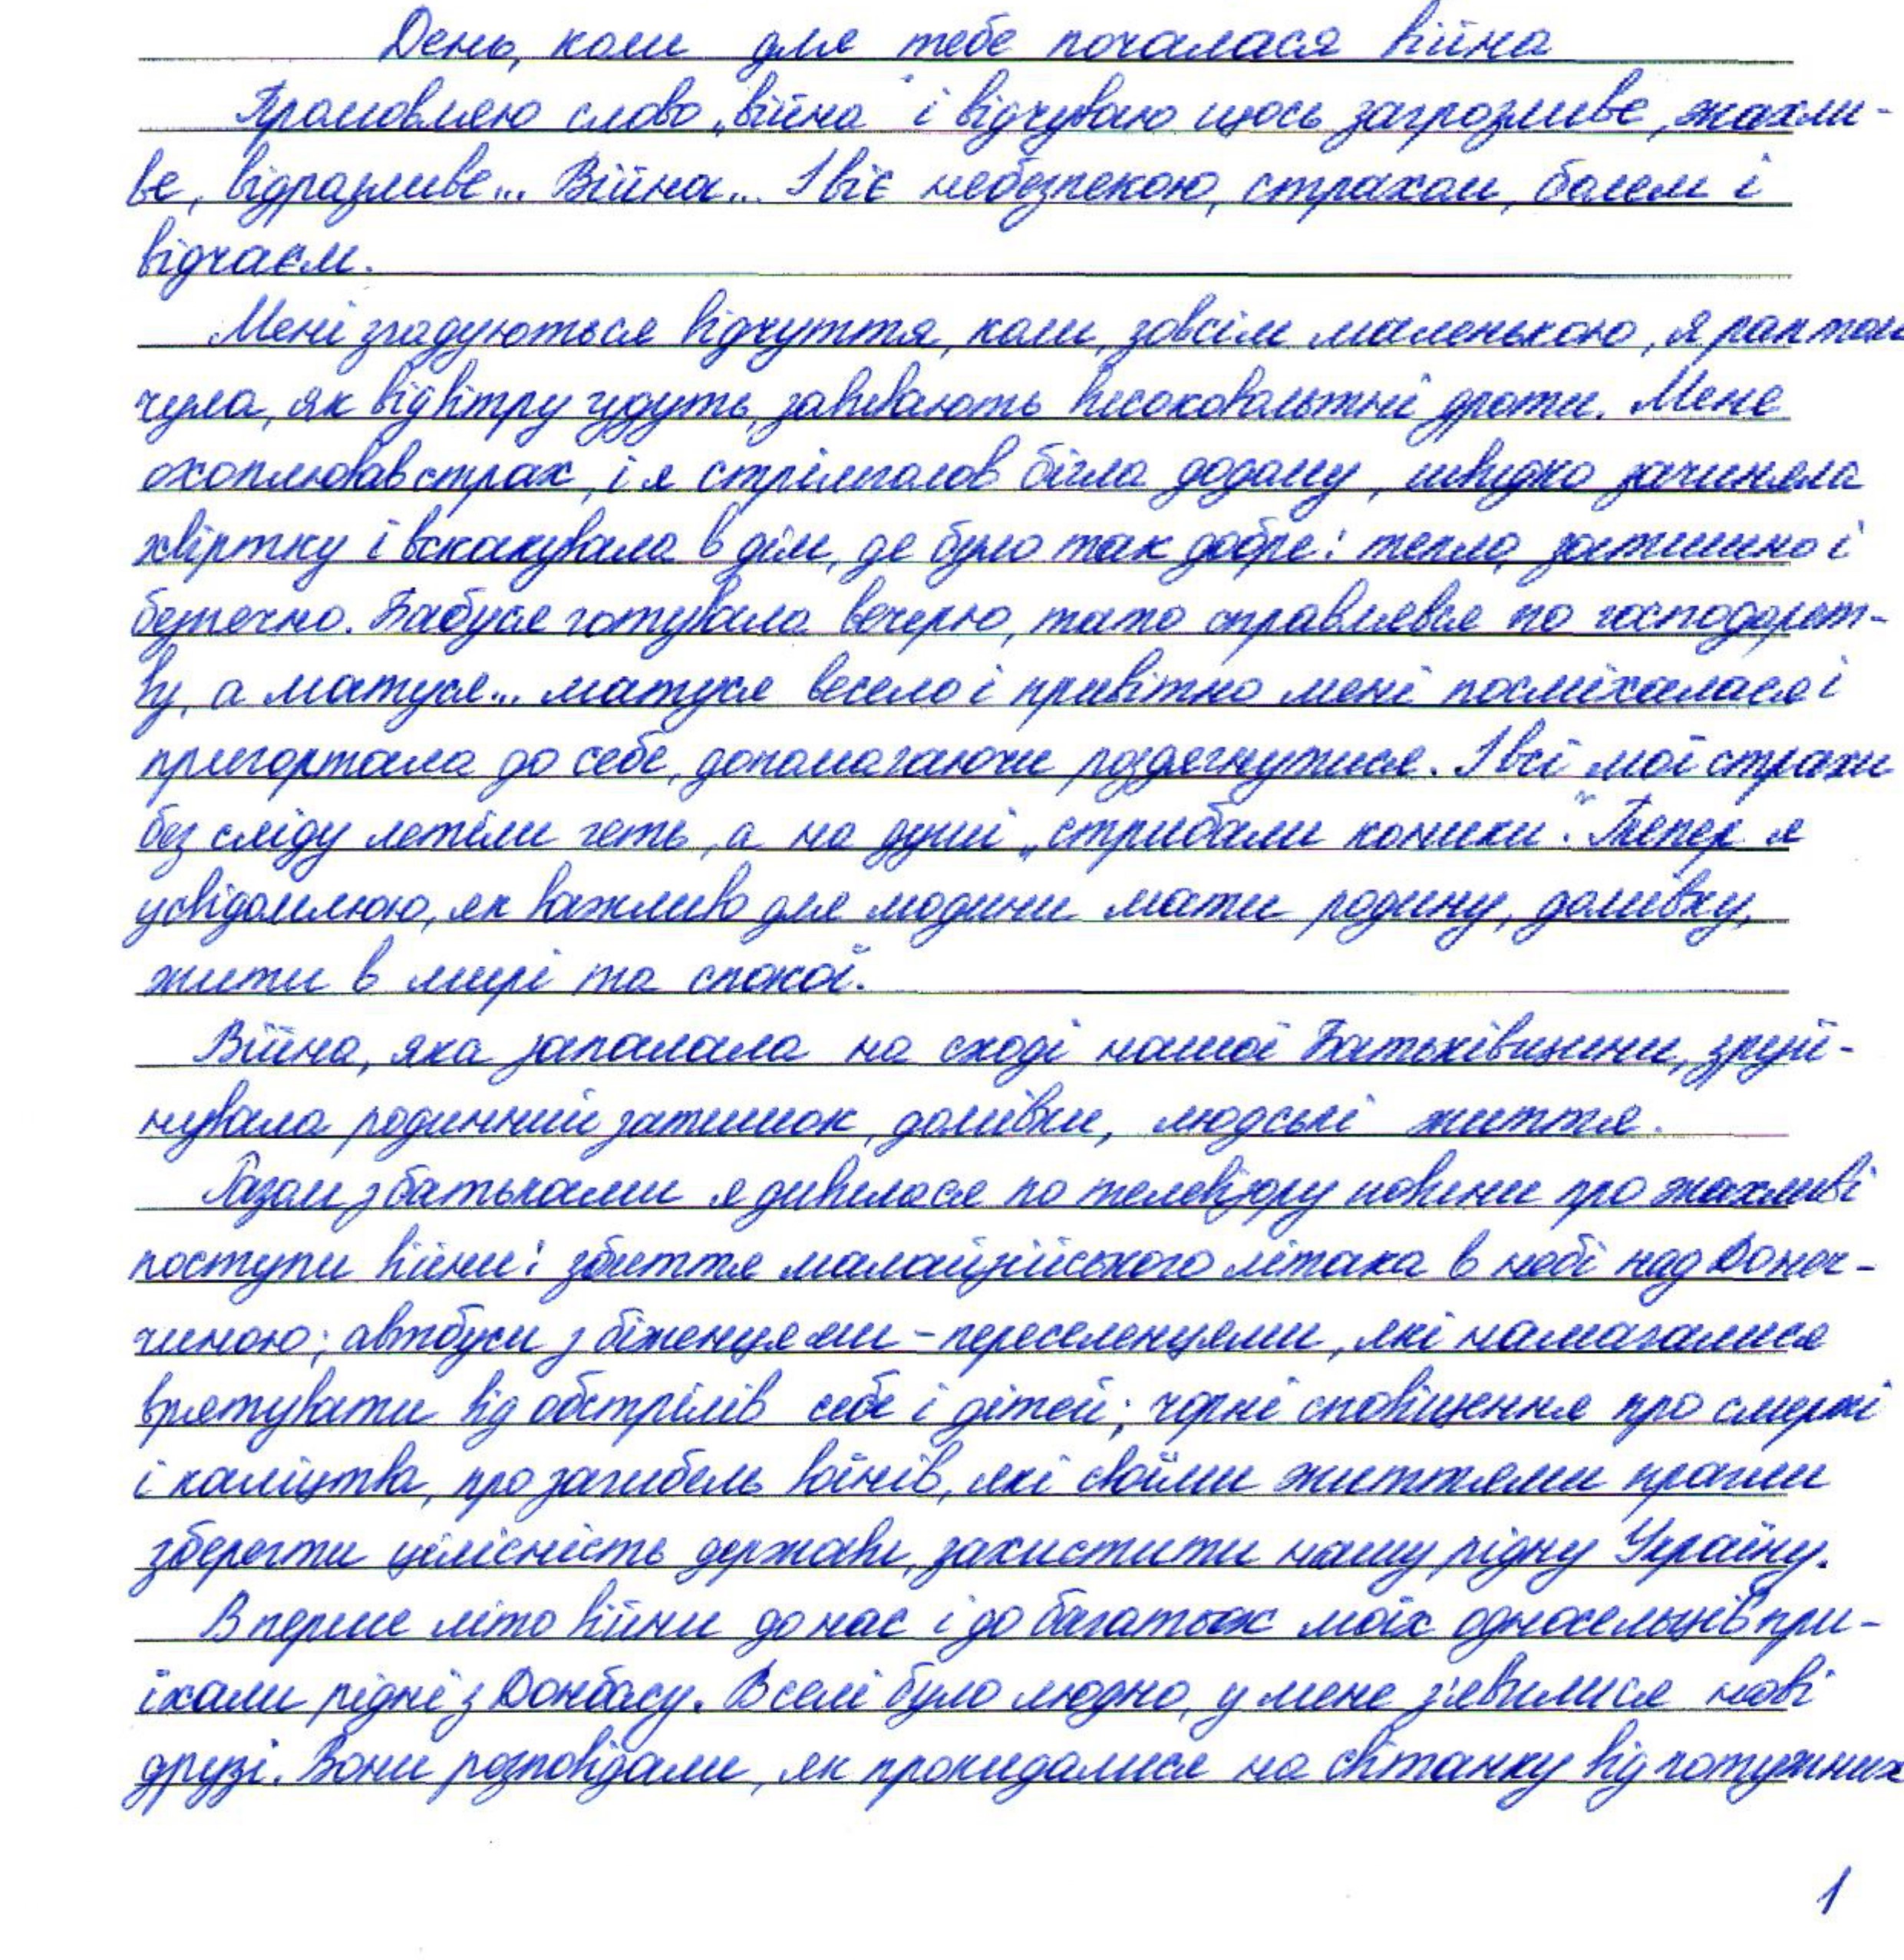 День, коли для тебе почалася війна
Промовляю слово „війна“ і відчуваю щось загрозливе, жахли-
ве, відразливе... Війна... І віє небезпекою, страхом, болем і
відчаєм.
Мені згадуються відчуття, коли, зовсім маленькою, я раптом
чула, як від вітру гудуть, завивають високовольтні дроти. Мене
охоплював страх, і я стрімголов бігла додому, швидко зачиняла
хвіртку і вскакувала в дім, де було так добре: тепло, затишно і
безпечно. Бабуся готувала вечерю, тато справлявся по господарст-
ву, а матуся... матуся весело і привітно мені посміхалася і
пригортала до себе, допомагаючи роздягнутися. І всі мої страхи
без сліду летіли геть, а на душі „стрибали коники“. Тепер я
усвідомлюю, як важливо для людини мати родину, домівку,
жити в мирі та спокої.
Війна, яка запалала на сході нашої Батьківщини, зруй-
нувала родинний затишок, домівки, людські життя.
Разом з батьками я дивилася по телевізору новини про жахливі
поступи війни: збиття малайзійського літака в небі над Донеч-
чиною; автобуси з біженцями-переселенцями, які намагалися
врятувати від обстрілів себе і дітей; чорні сповіщення про смерті
і каліцтва, про загибель воїнів, які своїми життями прагли
зберегти цілісність держави, захистити нашу рідну Україну.
В перше літо війни до нас і до багатьох моїх односельців при-
їхали рідні з Донбасу. В селі було людно, у мене з'явилися нові
друзі. Вони розповідали, як прокидалися на світанку від потужних
1